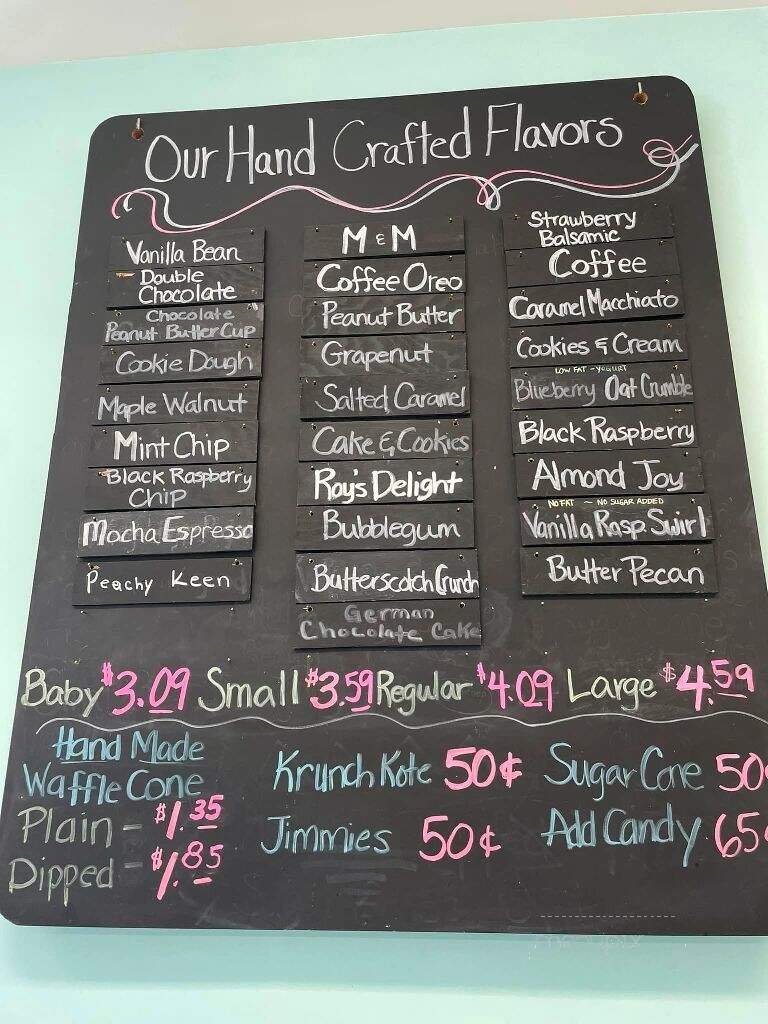 Our Hand Crafted Flavors
Vanilla Bean
Double
Chocolate
Chocolate
Peanut Butter Cup
Cookie Dough
Maple Walnut
Mint Chip
Black Raspberry
Chip
Mocha Espresso
Peachy Keen
M & M
Coffee Oreo
Peanut Butter
Grapenut
Salted Caramel
Cake & Cookies
Roy's Delight
Bubblegum
Butterscotch Crunch
German
Chocolate Cake
Strawberry
Balsamic
Coffee
Caramel Macchiato
Cookies & Cream
LOW FAT - YOGURT
Blueberry Oat Crumble
Black Raspberry
Almond Joy
NO FAT ~ NO SUGAR ADDED
Vanilla Rasp Swirl
Butter Pecan
Baby $3.09 Small $3.59 Regular $4.09 Large $4.59
Hand Made
Waffle Cone
Plain - $1.35
Dipped - $1.85
Krunch Kote 50¢
Jimmies 50¢
Sugar Cone 50
Add Candy .65¢